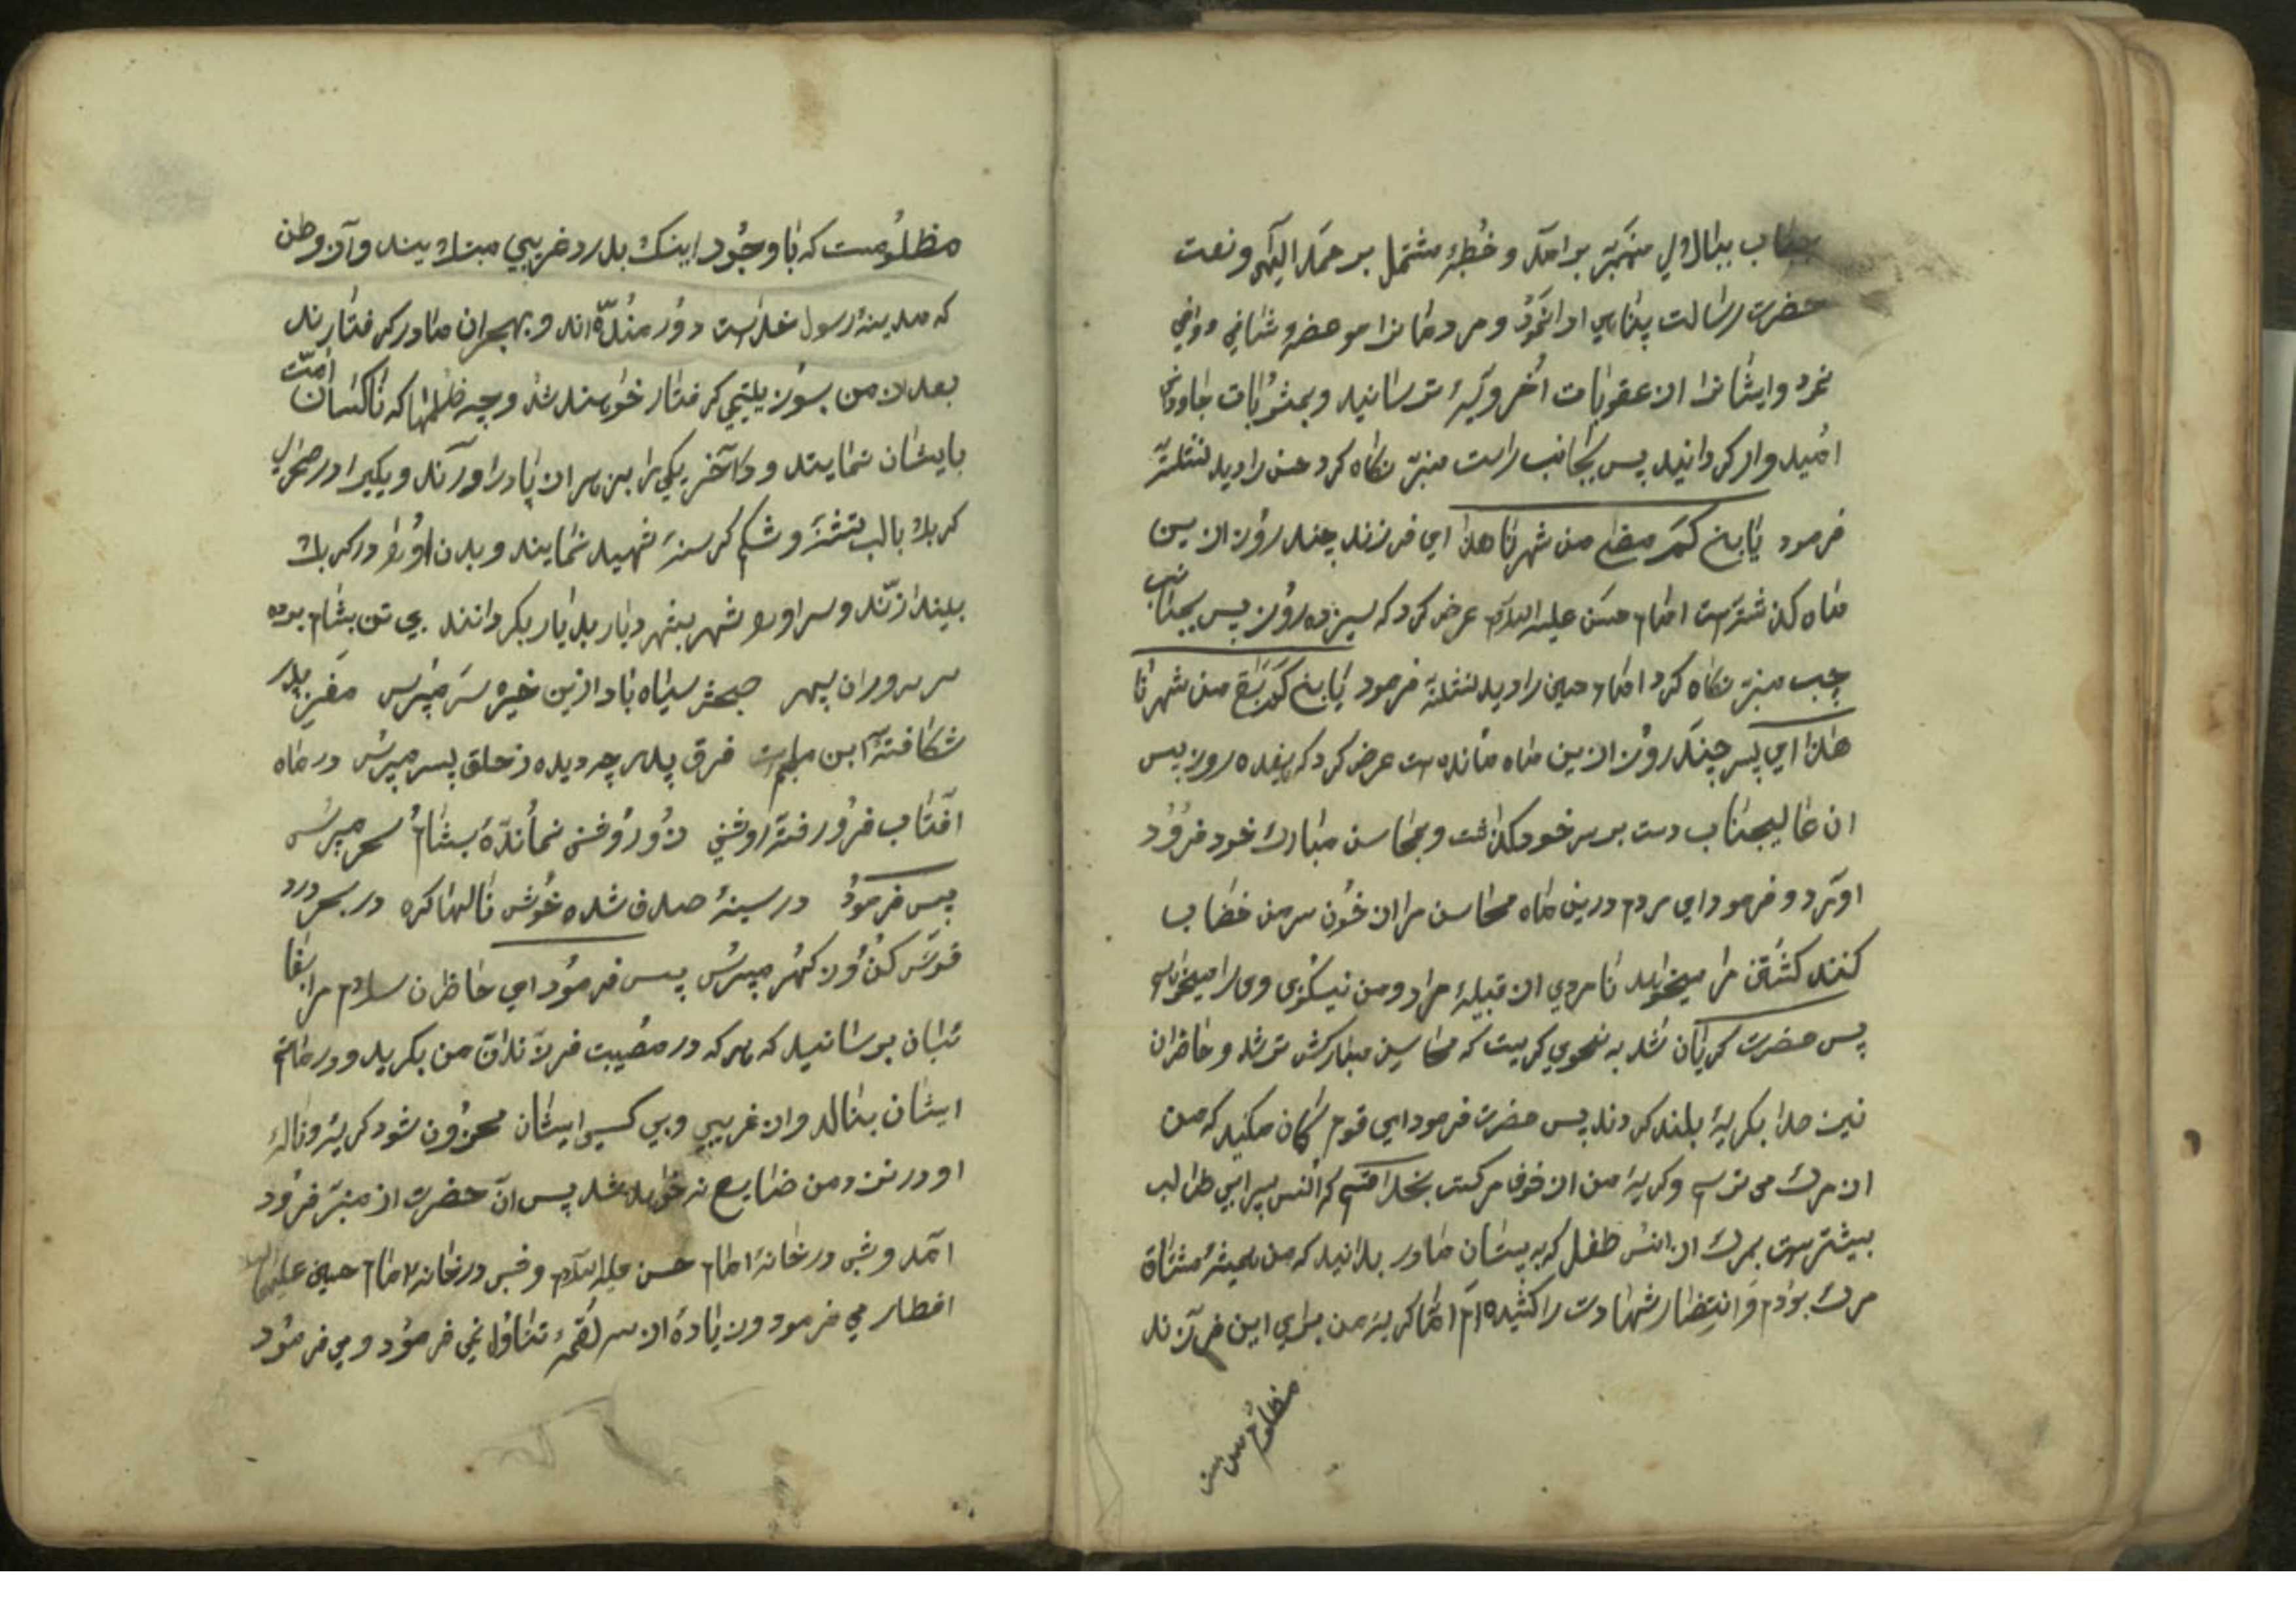 جناب ببالای منبر برآمد و خطبهٔ مشتمل بر حمد الهی و نعت
حضرت رسالت پناهی ادا نمود و مردمانرا موعضهٔ شافی و وافی
نمود و ایشانرا از عقوبات اخرویه ترسانید و بمثوبات جاودانی
امیدوار گردانید پس بجانب راست منبر نگاه کرد حسن را دید نشسته
فرمود یابنی کم مضی من شهرنا هذا ای فرزند چند روز ازین
ماه گذشته است امام حسن علیه السلام عرض کرد که سیزده روز پس بجانب
چپ منبر نگاه کرد امام حسین را دید نشسته فرمود یابنی کم بقی من شهرنا
هذا ای پسر چند روز ازین ماه مانده است عرض کرد که هفده روز پس
آن عالیجناب دست بر سر خود گذاشت و بمحاسن مبارک خود فرود
آورد و فرمود ای مردم درین ماه محاسن مرا از خون سر من خضاب
کنند کشتن مرا میخواهد نامردی از قبیلهٔ مراد و من نیکوئی وی را میخواهم
پس حضرت گریان شد به نحوی گریست که محاسن مبارکش تر شد و حاضران
نیز صدا بگریهٔ بلند کردند پس حضرت فرمود ای قوم گمان مکنید که من
از مرگ می ترسم و گریهٔ من از خوف مرگست بخدا قسم که انس پسر ابی طالب
بیشتر است بمرگ از انس طفل که به پستان مادر بدانید که من همیشه مشتاق
مرگ بودم و انتضار شهادت را کشیده ام اما گریه من برای این فرزند
مظلوم من
مظلومست که باوجود اینکه بدرد غریبی مبتلایند و از وطن
که مدینهٔ رسول خداست دور منده اند و بهجران مادر گرفتارند
بعد از من بسوز یتیمی گرفتار خواهند شد و چه ظلمها که ناکسان امت
بایشان نمایند و آخر یکی را بزهر از پا درآورند و یکیرا در صحرای
کربلا بالب تشنه و شکم گرسنه شهید نمایند و بدن او را در کربلا
بیندازند و سر او را شهر بشهر دیار بدیار بگردانند بی تن بشام برده
سر سروران سپهر صبحش سیاه باد ازین خیره سر مپرس مغز پدر
شکافتهٔ ابن ملجم است فرق پدر چه دیده ز حلق پسر مپرس در ماه
آفتاب فرو رفته روشنی روز روشن نماندهٔ بشام سحر مپرس
پس فرمود در سینهٔ صدف شده خونش نالها کره در بحر درد
قوس کن وز گهر مپرس پس فرمود ای حاظران سلام مرا بغا
ئبان برسانید که هر که در مصیبت فرزندان من بگرید و در ماتم
ایشان بنالد و از غریبی و بی کسی ایشان محزون شود گریه و نالهٔ
او در نزد من ضایع نخواهد شد پس آن حضرت از منبر فرود
آمد و شبی در خانهٔ امام حسن علیه السلام و شبی در خانهٔ امام حسین علیه السلام
افطار می فرمود و زیاده از سه لقمهٔ تناول نمی فرمود و می فرمود